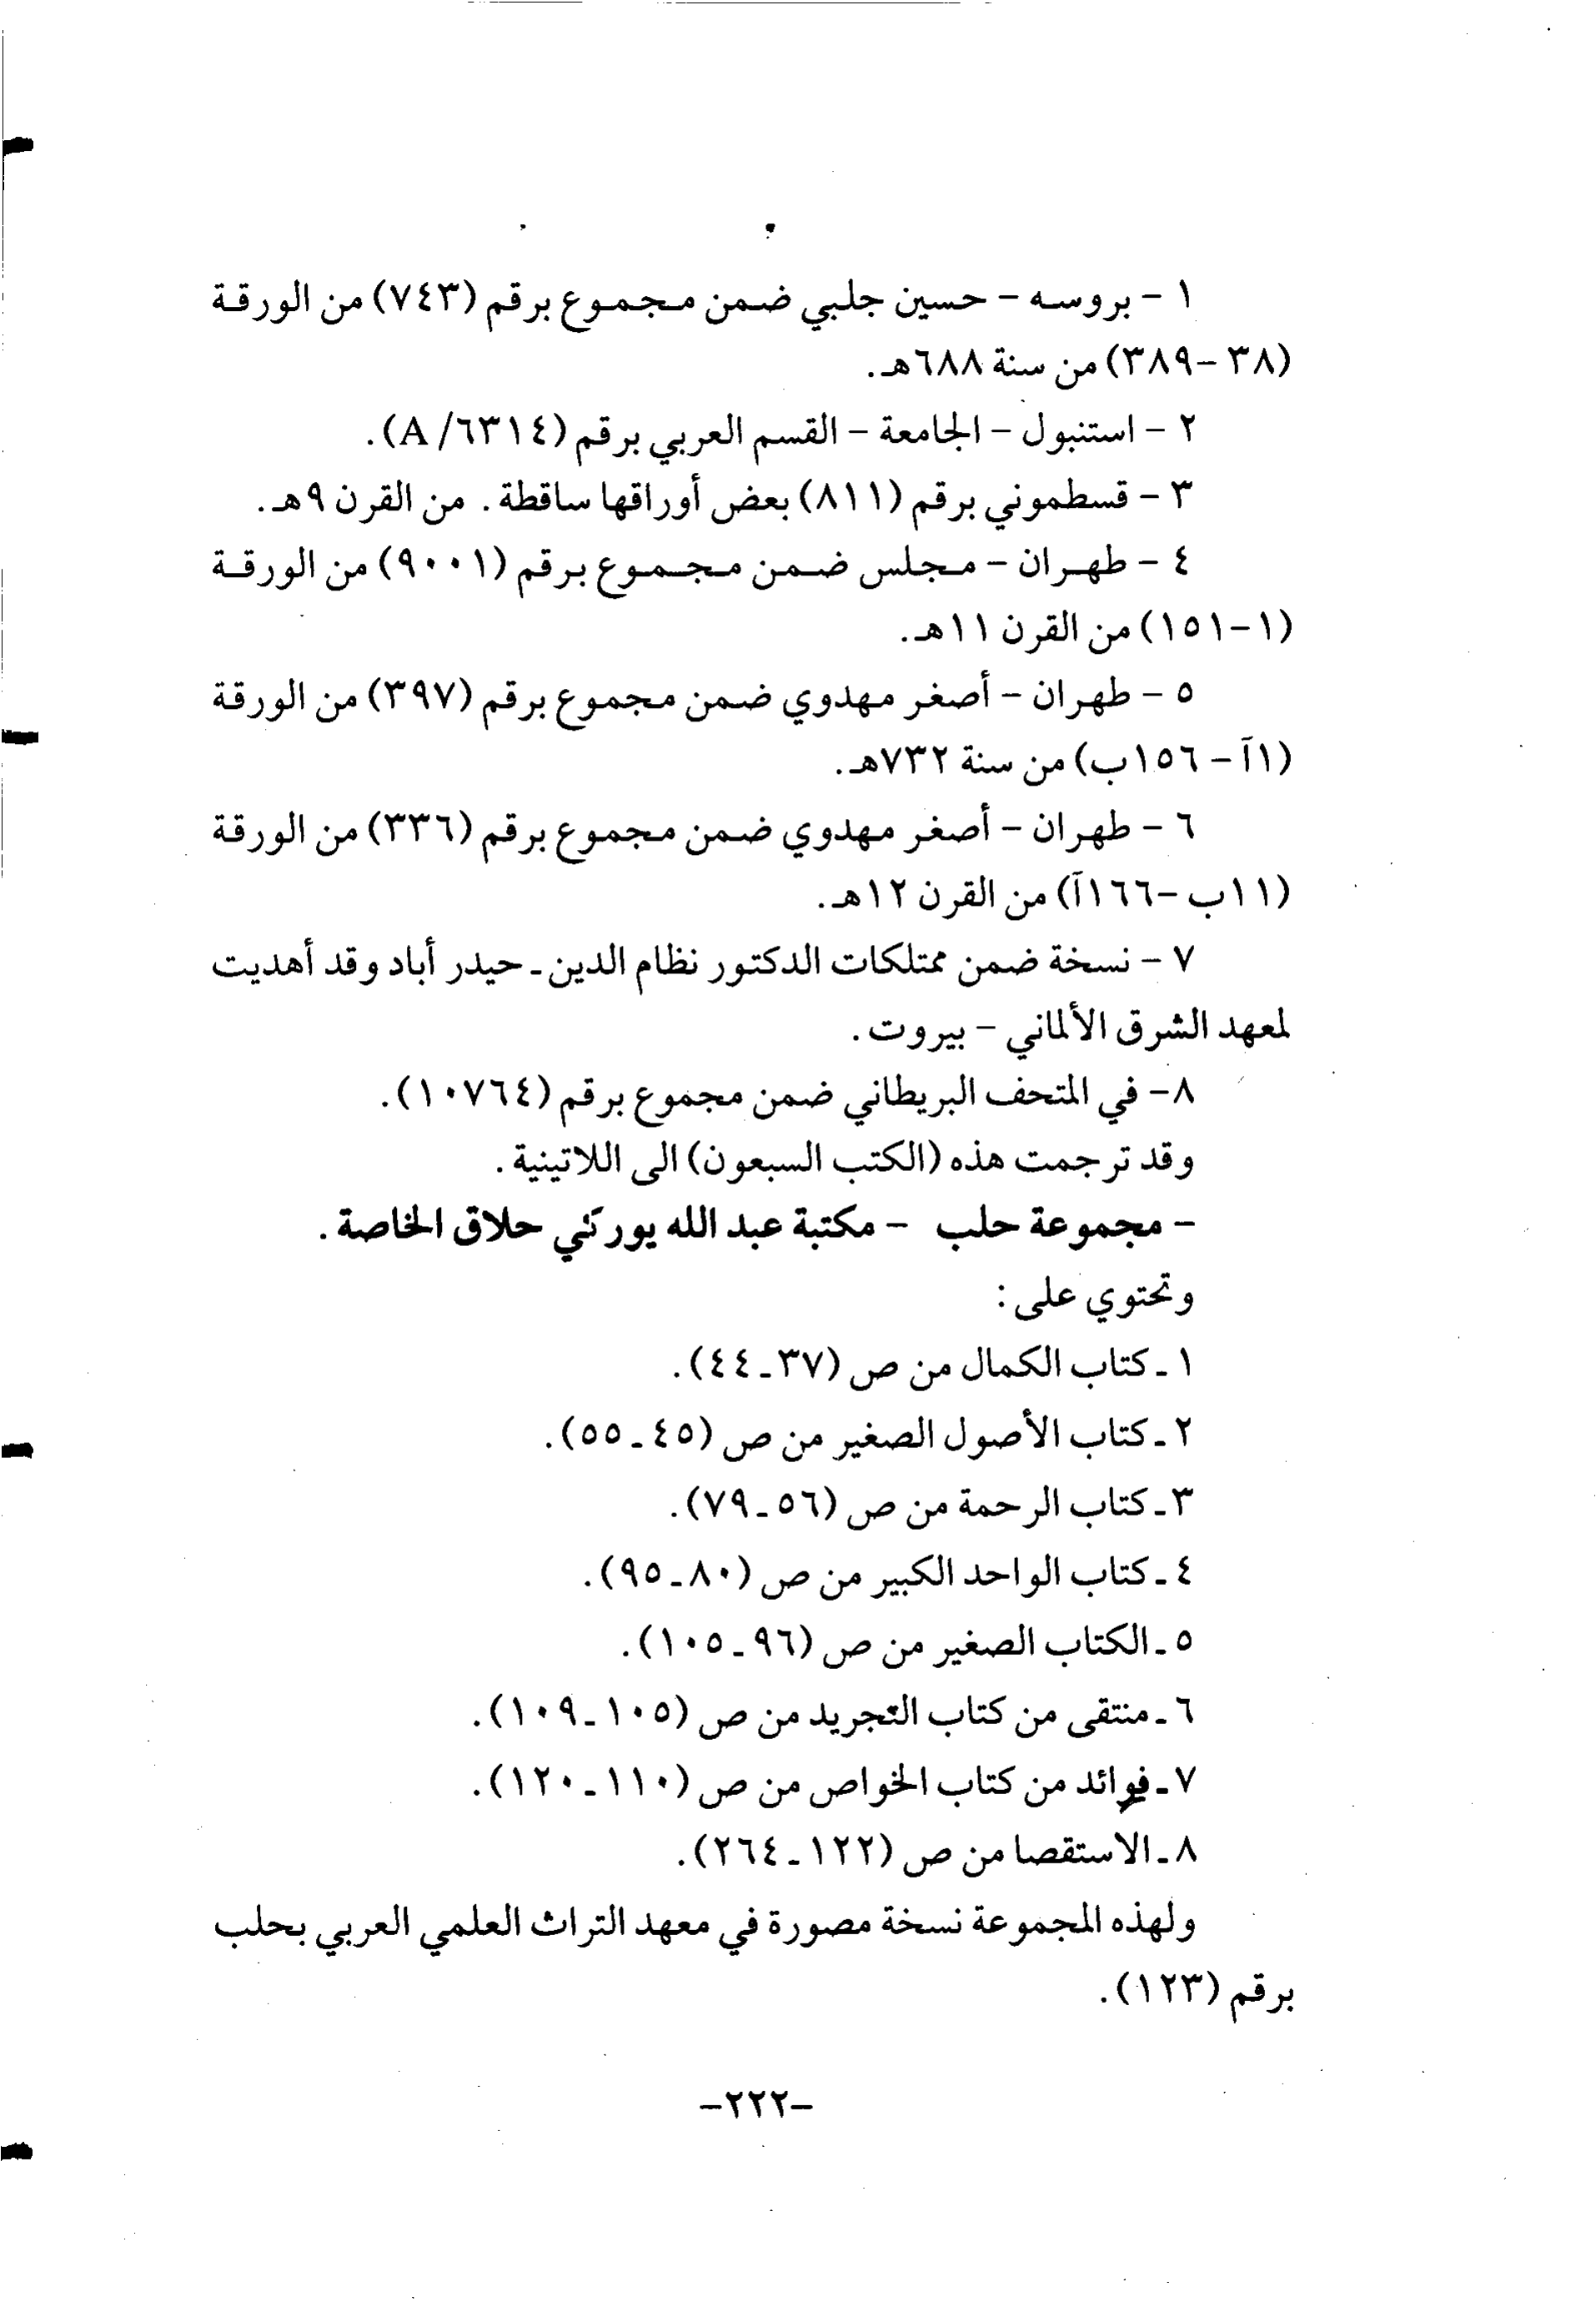 ١ - بروسه - حسين جلبي ضمن مجموع برقم (٧٤٣) من الورقة
(٣٨ -٣٨٩) من سنة ٦٨٨هـ.
٢ - استنبول - الجامعة - القسم العربي برقم (٦٣١٤/ A).
٣ - قسطموني برقم (٨١١) بعض أوراقها ساقطة. من القرن ٩هـ.
٤ - طهران - مجلس ضمن مجموع برقم (٩٠٠١) من الورقة
(١-١٥١) من القرن ١١هـ.
٥ - طهران - أصغر مهدوي ضمن مجموع برقم (٣٩٧) من الورقة
(١آ - ١٥٦ب) من سنة ٧٣٢هـ.
٦ - طهران - أصغر مهدوي ضمن مجموع برقم (٣٣٦) من الورقة
(١١ب -١٦٦آ) من القرن ١٢هـ.
٧ - نسخة ضمن ممتلكات الدكتور نظام الدين - حيدر أباد وقد أهديت
لمعهد الشرق الألماني - بيروت.
٨- في المتحف البريطاني ضمن مجموع برقم (١٠٧٦٤).
وقد ترجمت هذه (الكتب السبعون) الى اللاتينية.
- مجموعة حلب - مكتبة عبد الله يوركي حلاق الخاصة.
وتحتوي على:
١ - كتاب الكمال من ص (٣٧ - ٤٤).
٢ - كتاب الأصول الصغير من ص (٤٥ - ٥٥).
٣ - كتاب الرحمة من ص (٥٦ - ٧٩).
٤ - كتاب الواحد الكبير من ص (٨٠ - ٩٥).
٥ - الكتاب الصغير من ص (٩٦ - ١٠٥).
٦ - منتقى من كتاب التجريد من ص (١٠٥ - ١٠٩).
٧ - فوائد من كتاب الخواص من ص (١١٠ - ١٢٠).
٨ - الاستقصا من ص (١٢٢ - ٢٦٤).
ولهذه المجموعة نسخة مصورة في معهد التراث العلمي العربي بحلب
برقم (١٢٣).
-٢٢٢-